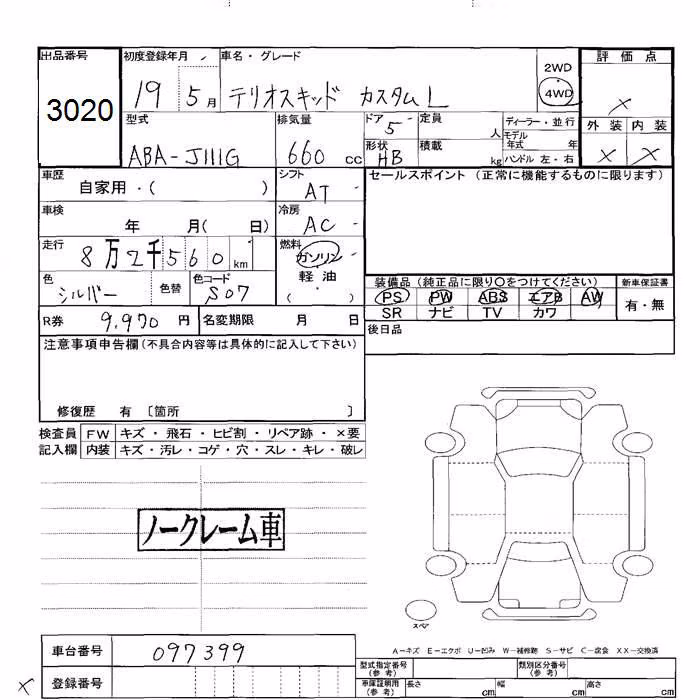 出品番号 初度登録年月 車名・グレード 2WD 評価点
3020 19 5月 テリオスキッド カスタム L 4WD ×
型式 排気量 ドア 5 定員 人 ディーラー・並行 外装 内装
モデル年式 年
ABA-J111G 660 cc 形状 HB 積載 kg ハンドル 左・右 × ×
車歴 自家用・( ) シフト AT セールスポイント (正常に機能するものに限ります)
車検 年 月( 日) 冷房 AC
走行 8万2千560km 燃料 ガソリン
軽油
色 シルバー 色替 色コード S07 ( ・ ) 装備品 (純正品に限り○をつけてください) 新車保証書
PS PW ABS エアB AW 有・無
R券 9,970 円 名変期限 月 日 SR ナビ TV カワ
後日品
注意事項申告欄 (不具合内容等は具体的に記入して下さい)
修復歴 有 〔箇所 〕
検査員 FW キズ・飛石・ヒビ割・リペア跡・×要
記入欄 内装 キズ・汚レ・コゲ・穴・スレ・キレ・破レ
ノークレーム車
スペア
A-キズ E-エクボ U-凹み W-補修跡 S-サビ C-腐食 XX-交換済
車台番号 097399
型式指定番号 (参考) 類別区分番号 (参考)
× 登録番号 車庫証明用 (参考) 長さ cm 幅 cm 高さ cm